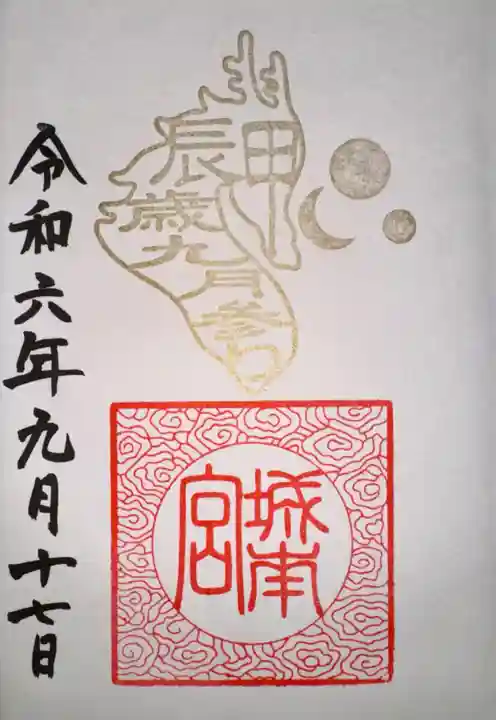 甲辰歳九月参
城南宮
令和六年九月十七日